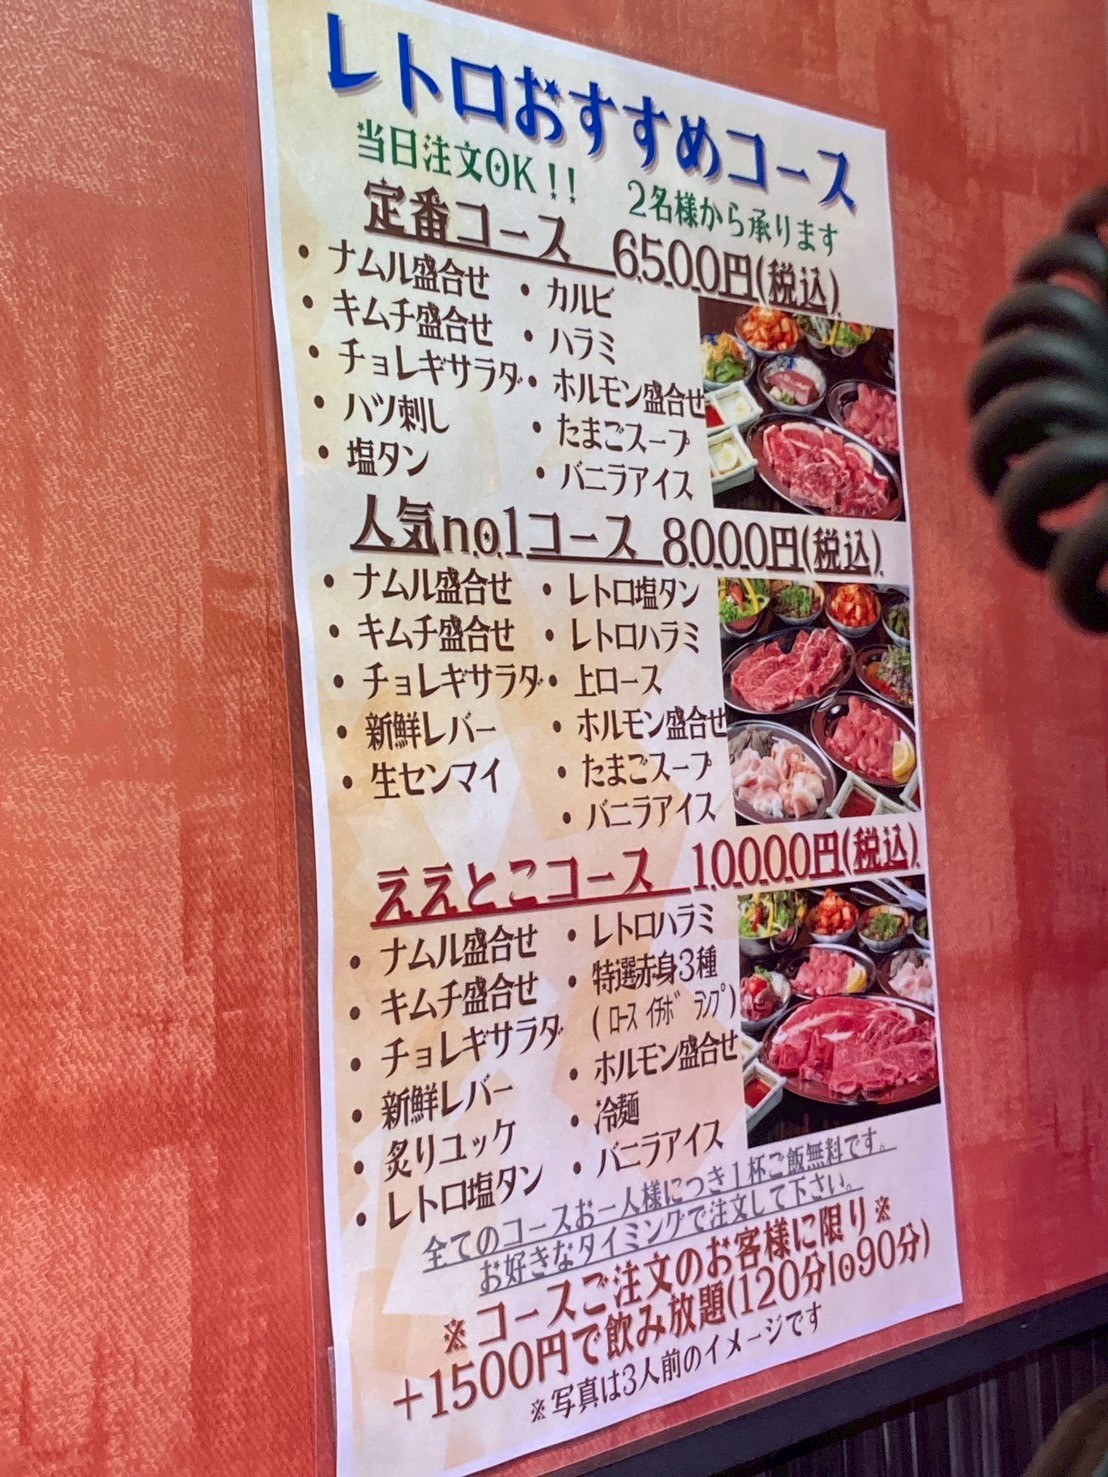 レトロおすすめコース
当日注文OK!! 2名様から承ります
定番コース 6500円(税込)
・ナムル盛合せ
・キムチ盛合せ
・チョレギサラダ
・ハツ刺し
・塩タン
・カルビ
・ハラミ
・ホルモン盛合せ
・たまごスープ
・バニラアイス
人気no1コース 8000円(税込)
・ナムル盛合せ
・キムチ盛合せ
・チョレギサラダ
・新鮮レバー
・生センマイ
・レトロ塩タン
・レトロハラミ
・上ロース
・ホルモン盛合せ
・たまごスープ
・バニラアイス
ええとこコース 10000円(税込)
・ナムル盛合せ
・キムチ盛合せ
・チョレギサラダ
・新鮮レバー
・炙りユッケ
・レトロ塩タン
・レトロハラミ
・特選赤身3種
(ロース イチボ ランプ)
・ホルモン盛合せ
・冷麺
・バニラアイス
全てのコースお一人様につき1杯ご飯無料です。
お好きなタイミングで注文して下さい。
※コースご注文のお客様に限り※
+1500円で飲み放題(120分lo90分)
※写真は3人前のイメージです